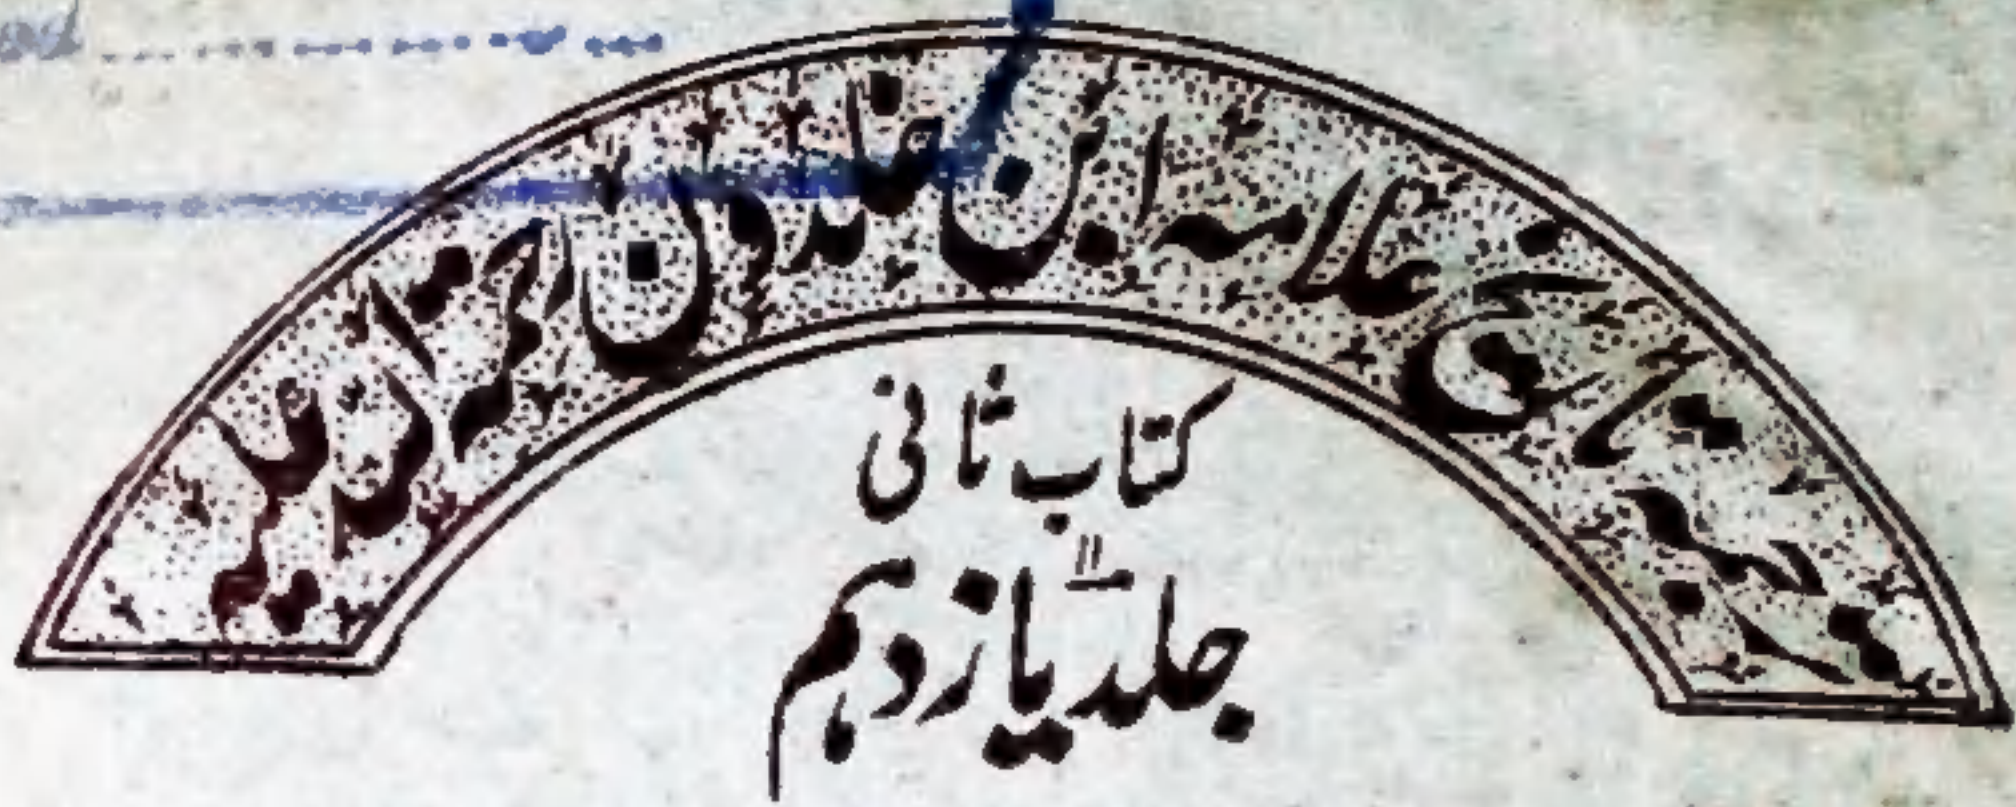 ترجمہ تاریخ علامہ ابن خلدون رحمۃ اللہ علیہ
کتاب ثانی
جلد یازدہم
۱۱